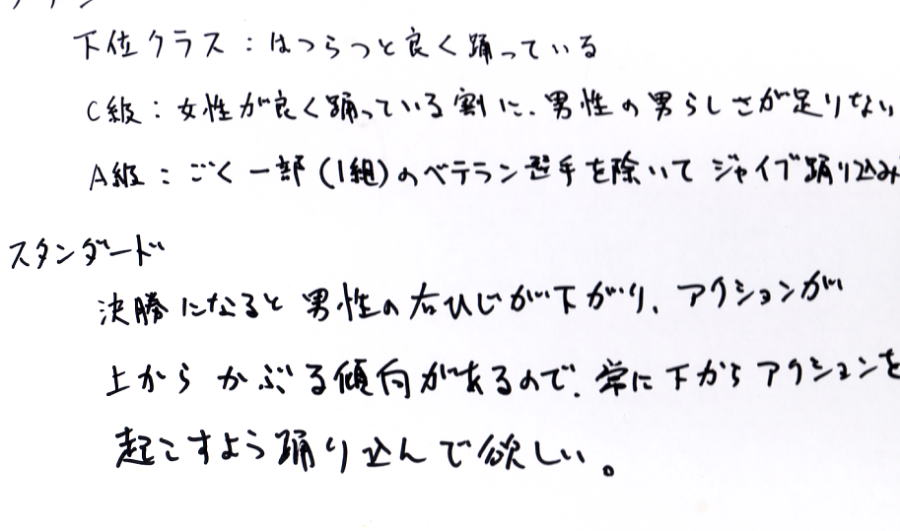 下位クラス：はつらつと良く踊っている
C級：女性が良く踊っている割に、男性の男らしさが足りない
A級：ごく一部（1組）のベテラン選手を除いてジャイブ踊り込み
スタンダード
決勝になると男性の右ひじが下がり、アクションが
上からかぶる傾向があるので、常に下からアクションを
起こすよう踊り込んで欲しい。